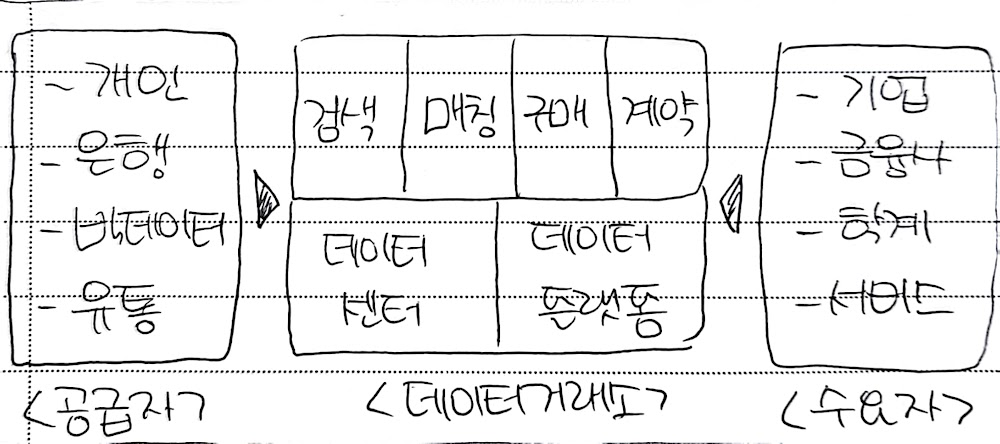 - 개인
- 은행
- 빅데이터
- 유통
<공급자>
검색 매칭 구매 계약
데이터 센터
데이터 플랫폼
<데이터거래소>
- 기업
- 금융사
- 학계
- 서비스
<수요자>